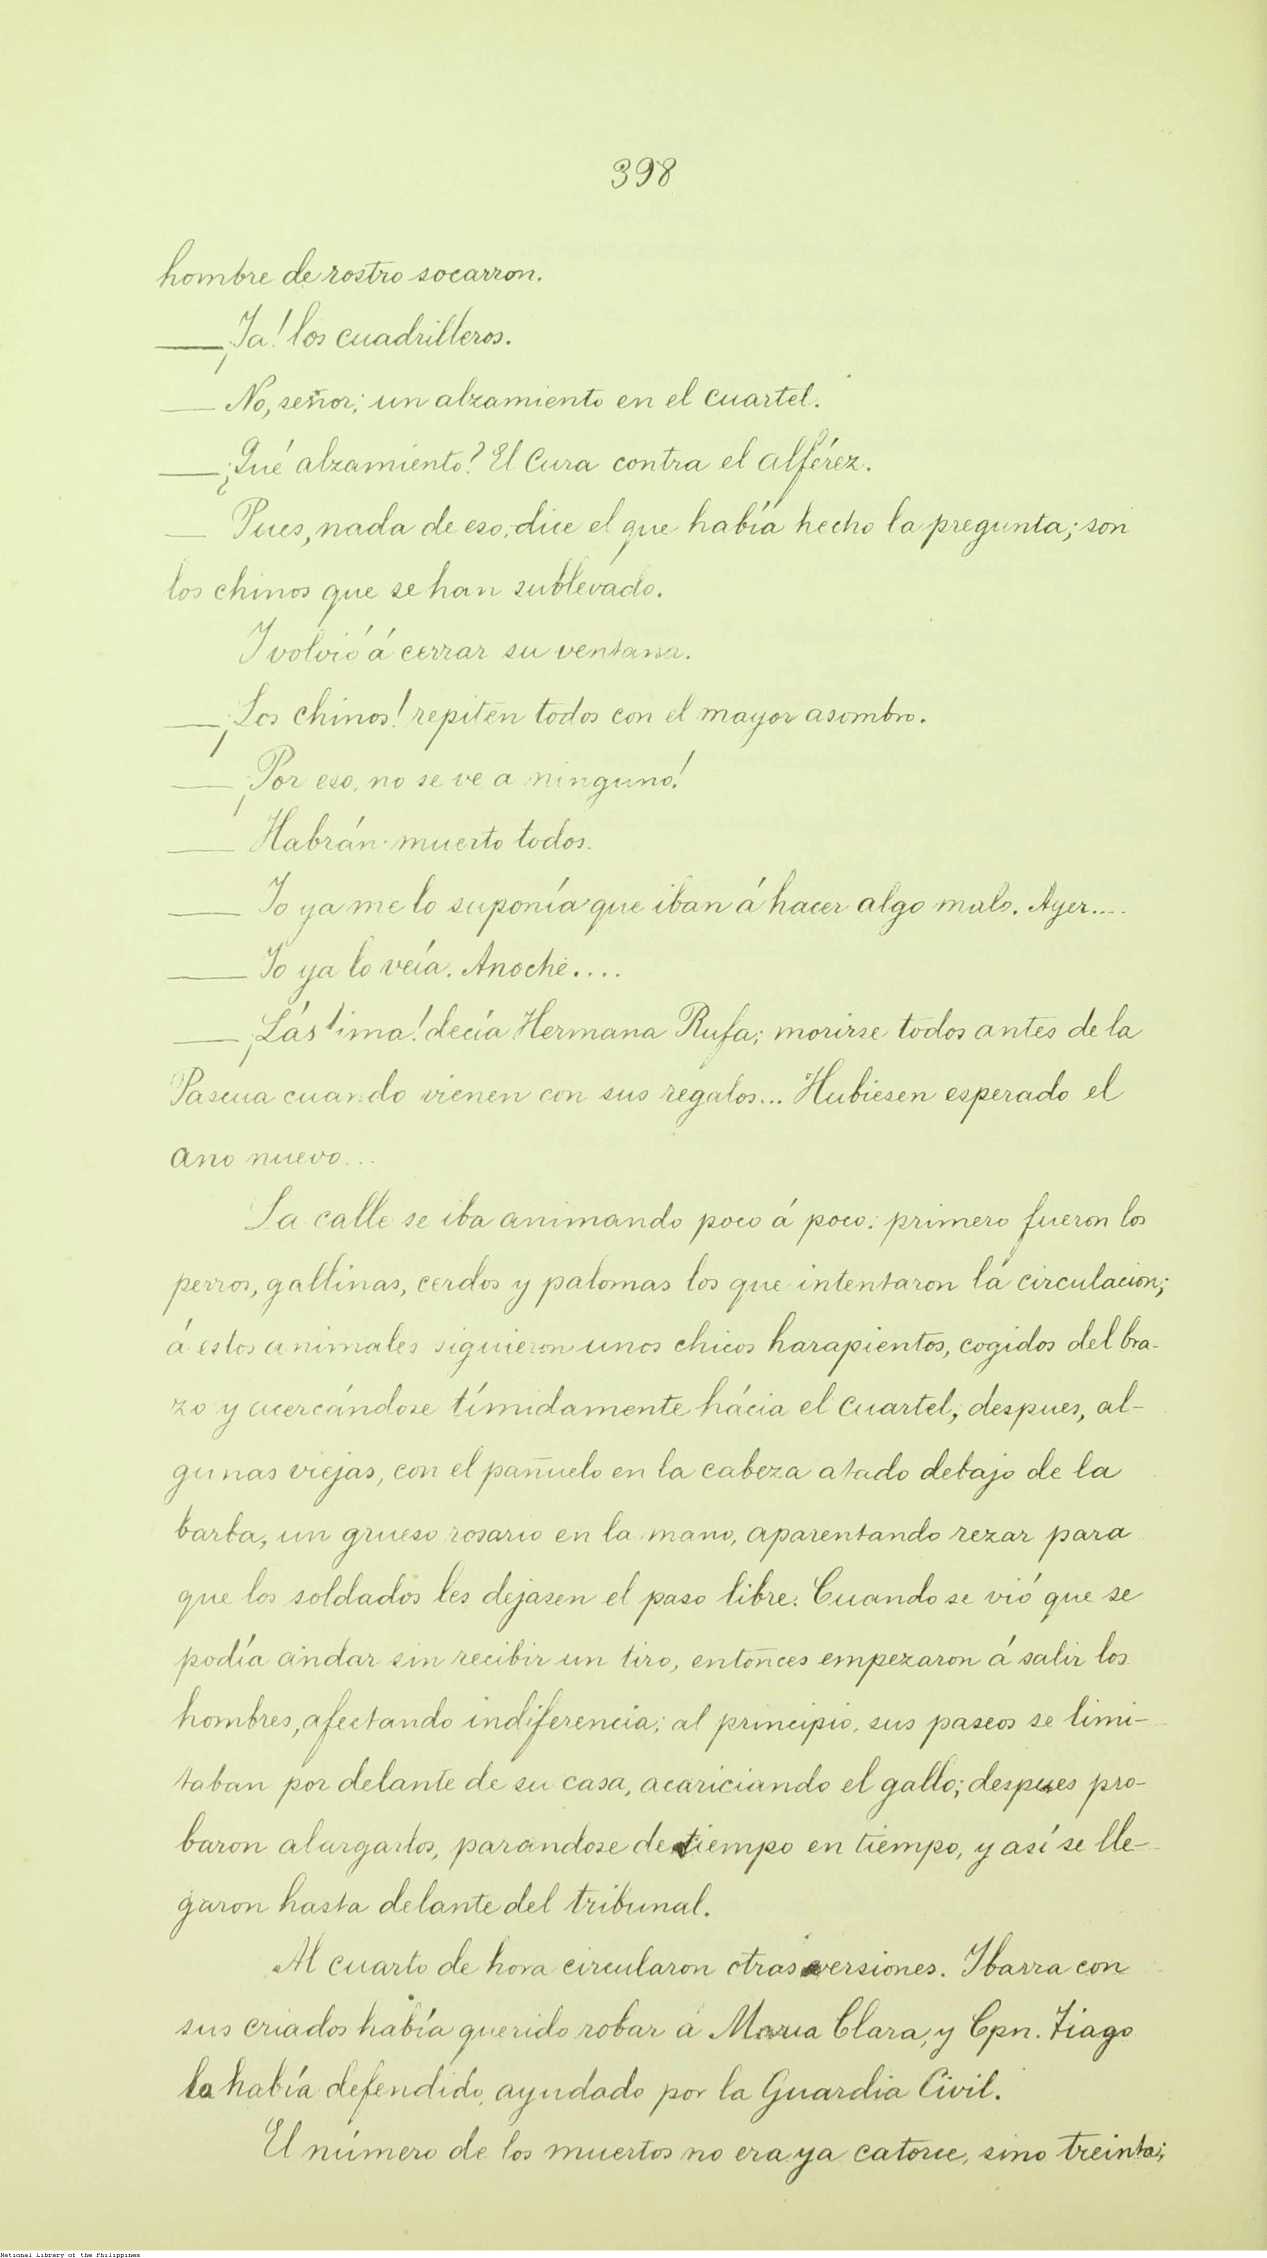 398
hombre de rostro socarron.
— ¡Ya! los cuadrilleros.
— No, señor; un alzamiento en el cuartel.
— ¿Qué alzamiento? El Cura contra el alférez.
— Pues, nada de eso, dice el que había hecho la pregunta; son
los chinos que se han sublevado.
Y volvió á cerrar su ventana.
— ¡Los chinos! repiten todos con el mayor asombro.
— ¡Por eso, no se ve a ninguno!
— Habrán muerto todos.
— Yo ya me lo suponía que iban á hacer algo malo. Ayer....
— Yo ya lo veía. Anoche....
— ¡Lástima! decía Hermana Rufa; morirse todos antes de la
Pascua cuando vienen con sus regalos... Hubiesen esperado el
ano nuevo...
La calle se iba animando poco á poco: primero fueron los
perros, gallinas, cerdos y palomas los que intentaron la circulacion;
á estos animales siguieron unos chicos harapientos, cogidos del bra-
zo y acercándose tímidamente hácia el cuartel; despues, al-
gunas viejas, con el pañuelo en la cabeza atado debajo de la
barba, un grueso rosario en la mano, aparentando rezar para
que los soldados les dejasen el paso libre. Cuando se vió que se
podía andar sin recibir un tiro, entonces empezaron á salir los
hombres, afectando indiferencia; al principio, sus paseos se limi-
taban por delante de su casa, acariciando el gallo; despues pro-
baron alargarlos, parandose de tiempo en tiempo, y así se lle-
garon hasta delante del tribunal.
Al cuarto de hora circularon otras versiones. Ibarra con
sus criados había querido robar á Maria Clara, y Cpn. Tiago
la había defendido, ayudado por la Guardia Civil.
El número de los muertos no era ya catorce, sino treinta;
National Library of the Philippines